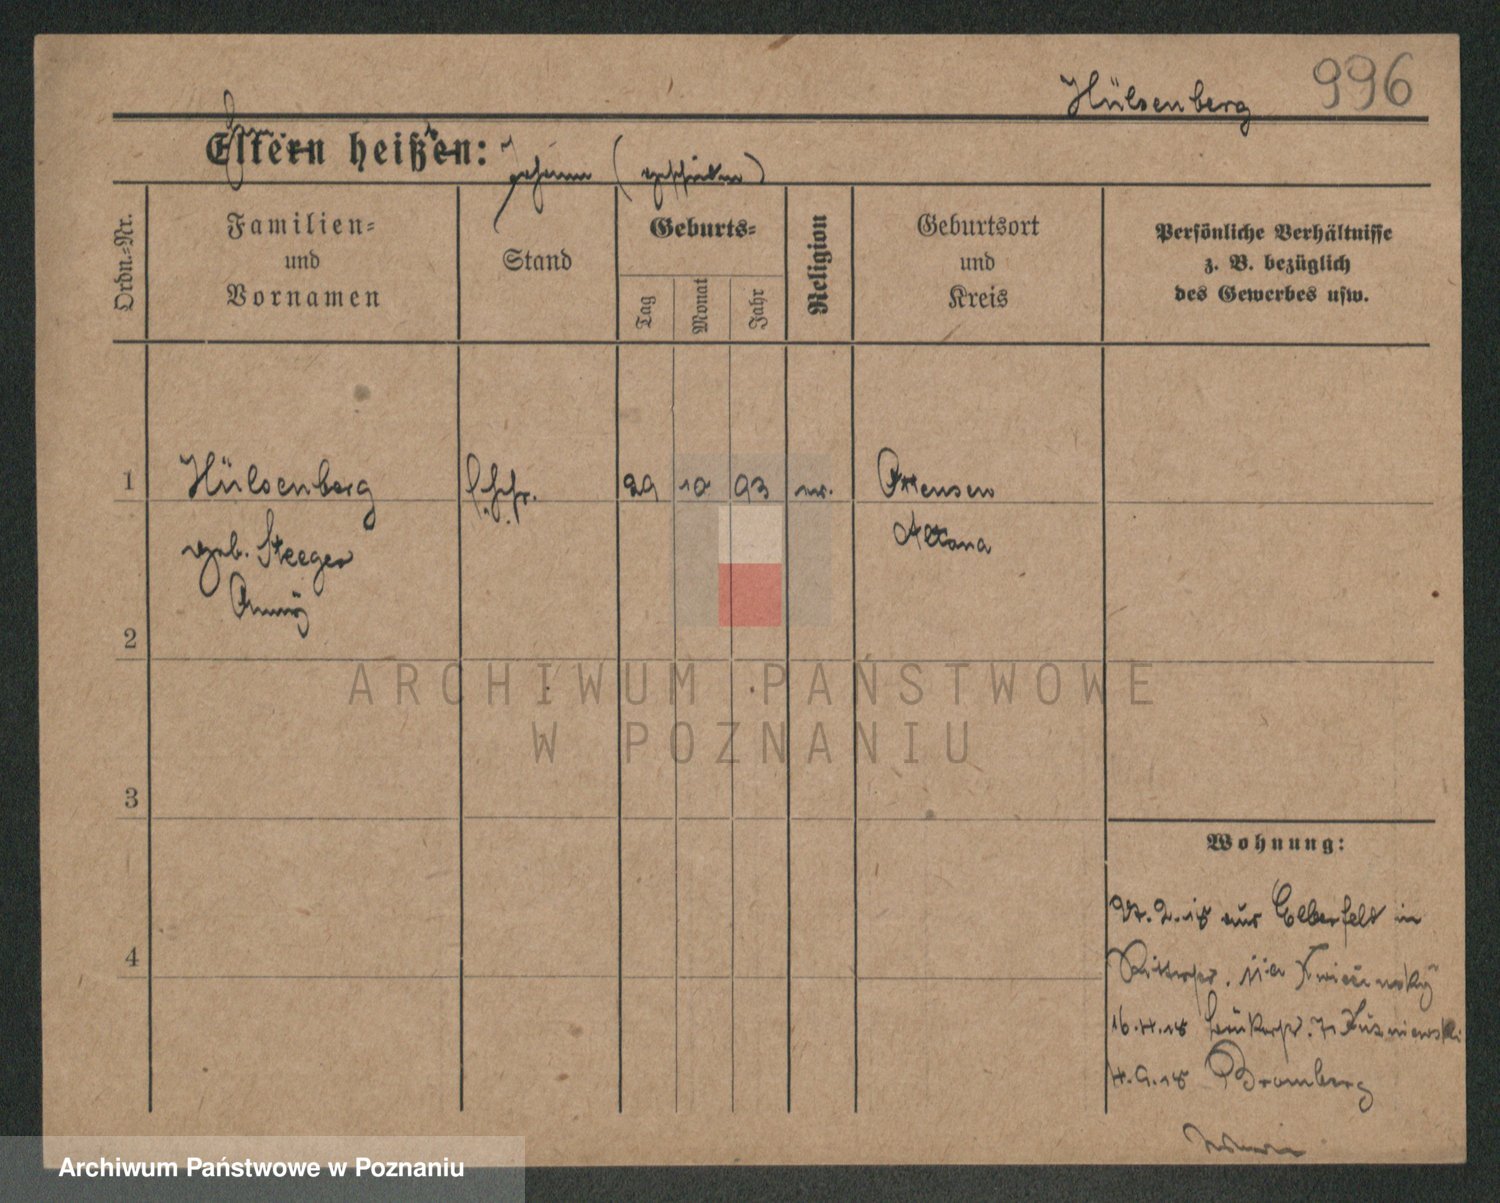 Hülsenberg 996
Eltern heißen: Johann (geschieden)
Ordn.-Nr.
Familien-
und
Vornamen
Stand
Geburts-
Tag
Monat
Jahr
Religion
Geburtsort
und
Kreis
Persönliche Verhältnisse
z. B. bezüglich
des Gewerbes usw.
1 Hülsenberg 29 10 93 Ottensen
geb. Steeger Altona
2
3
4
Wohnung:
27.2.18 aus Elberfeld in
Ritterstr. 11a
16.4.18
4.9.18 Bromberg
ARCHIWUM PAŃSTWOWE
W POZNANIU
Archiwum Państwowe w Poznaniu